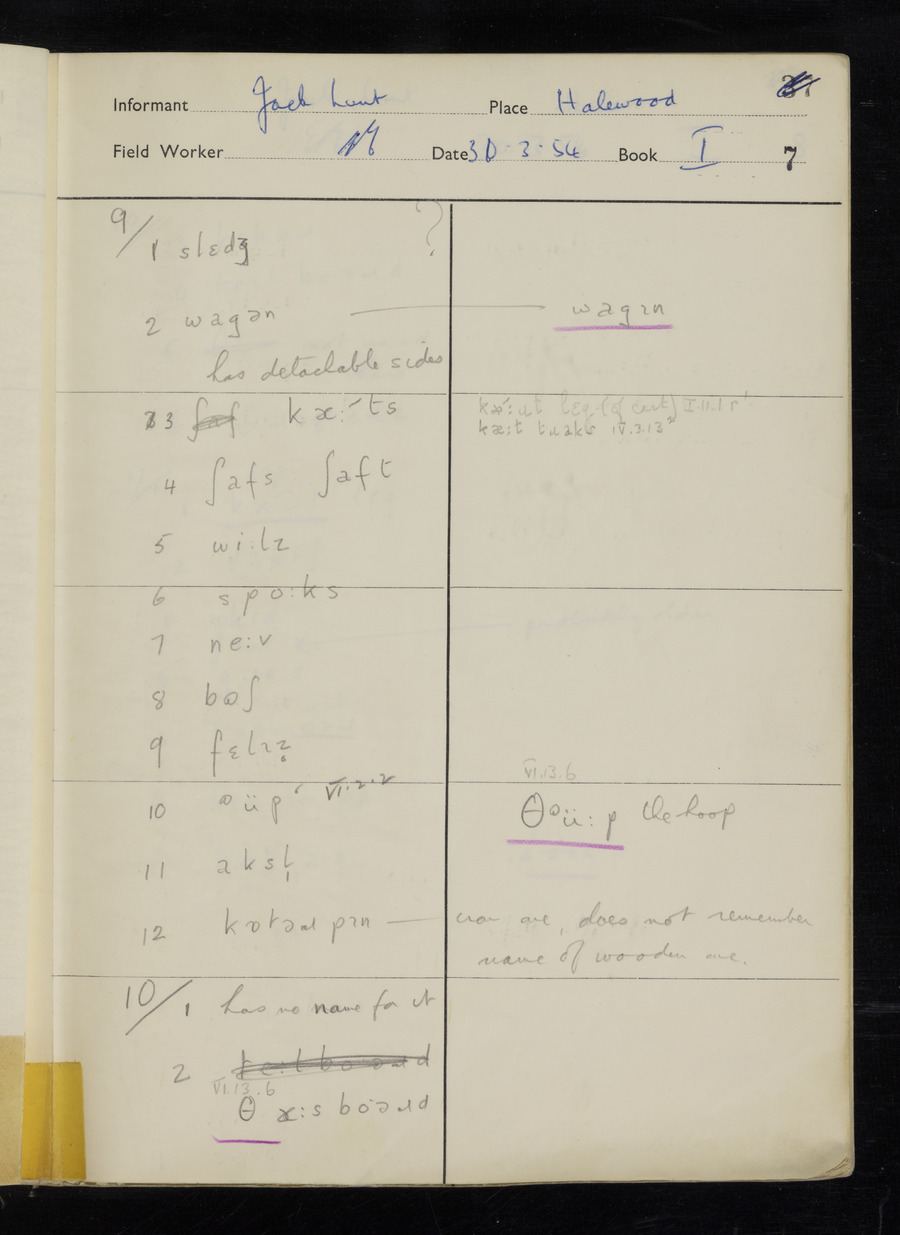 Informant Jack Lunt Place Halewood
Field Worker Date 30.3.54 Book I 7
9/1 slɛdʒ ?
2 wagən wagɪn
has detachable sides
3 kæ:ts
kæ:t tɹaks IV.3.13
4 ʃafs ʃaft
5 wi:lz
6 spo:ks
7 ne:v
8 boʃ
9 fɛlɪz
VI.13.6
10 ᶷüp VI.2.2 θᶷü:p the hoop
11 aksl̩
12 kɒtəɹ pɪn iron one, does not remember
name of wooden one.
10/1 has no name for it
2
VI.13.6
θ æ:s bɔəɹd